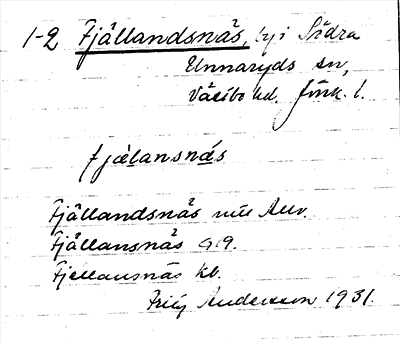 1-2 Fjällandsnäs, by i Södra
Unnaryds sn,
Västbo hd. Jönk. l.
fjälansnäs
Fjällandsnäs
Fjällansnäs
Fjellansnäs kb.
Fritz Andersson 1931.